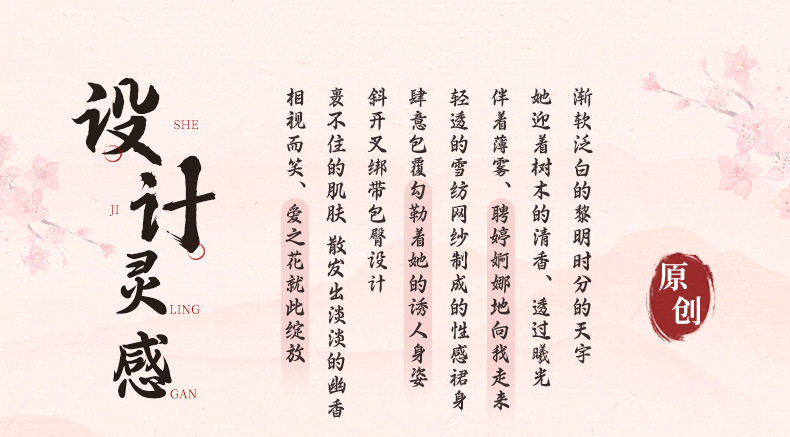 设计灵感
SHE
JI
LING
GAN
渐软泛白的黎明时分的天宇
她迎着树木的清香、透过曦光
伴着薄雾、聘婷婀娜地向我走来
轻透的雪纺网纱制成的性感裙身
肆意包覆勾勒着她的诱人身姿
斜开叉绑带包臀设计
裹不住的肌肤 散发出淡淡的幽香
相视而笑、爱之花就此绽放
原创